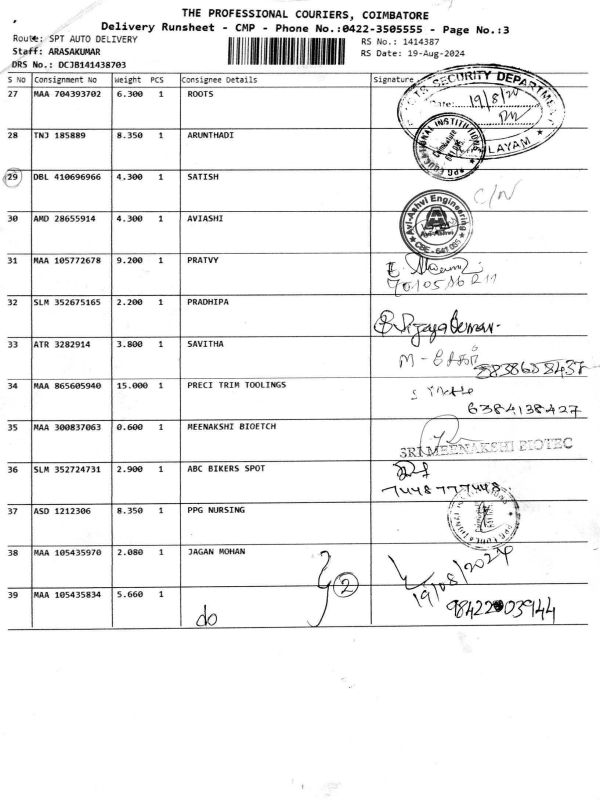 THE PROFESSIONAL COURIERS, COIMBATORE
Delivery Runsheet - CMP - Phone No.:0422-3505555 - Page No.:3
Route: SPT AUTO DELIVERY
RS No.: 1414387
Staff: ARASAKUMAR
RS Date: 19-Aug-2024
DRS No.: DCJB141438703
S No Consignment No Weight PCS Consignee Details Signature
27 MAA 704393702 6.300 1 ROOTS
SECURITY DEPARTMENT
Date: 19/8/20
LAYAM
28 TNJ 185889 8.350 1 ARUNTHADI
PG EDUCATIONAL INSTITUTIONS
Coimbatore
29 DBL 410696966 4.300 1 SATISH C/N
30 AMD 28655914 4.300 1 AVIASHI
Avi-Ashvi Engineering
Avi-Ashvi
CBE - 641 035
31 MAA 105772678 9.200 1 PRATVY
32 SLM 352675165 2.200 1 PRADHIPA
33 ATR 3282914 3.800 1 SAVITHA
8838658437
34 MAA 865605940 15.000 1 PRECI TRIM TOOLINGS
6384138427
35 MAA 300837063 0.600 1 MEENAKSHI BIOETCH
SRI MEENAKSHI BIOTEC
36 SLM 352724731 2.900 1 ABC BIKERS SPOT
7448777448
37 ASD 1212306 8.350 1 PPG NURSING
38 MAA 105435970 2.080 1 JAGAN MOHAN
2
19/08/2024
39 MAA 105435834 5.660 1
do
9842203944